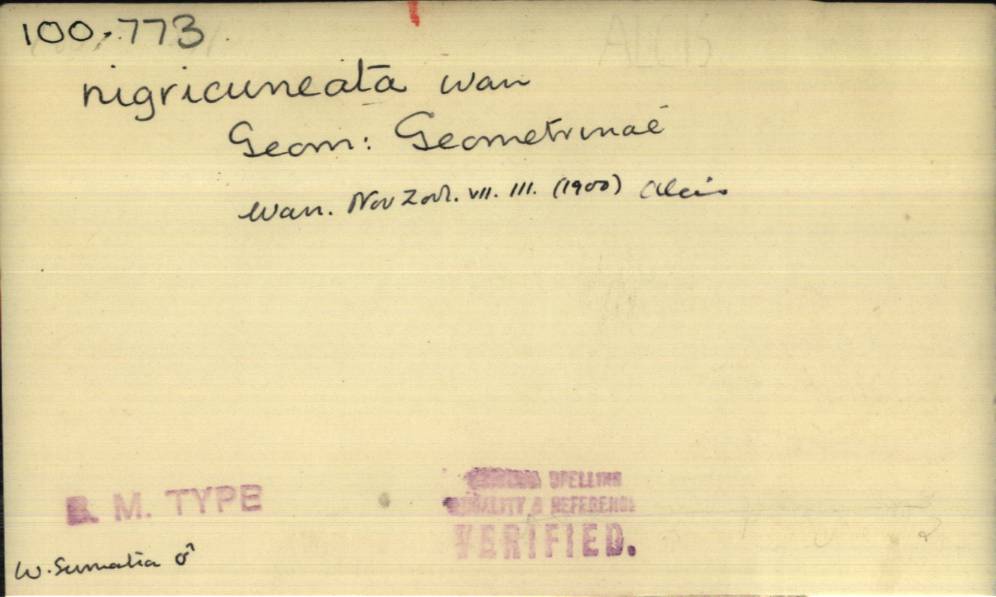 100.773
ALCIS
nigricuneata Warr
Geom: Geometrinae
Warr. Nov Zool. VII. III. (1900) Alcis
B. M. TYPE
SPELLING
LOCALITY & REFERENCE
VERIFIED.
W. Sumatra ♂